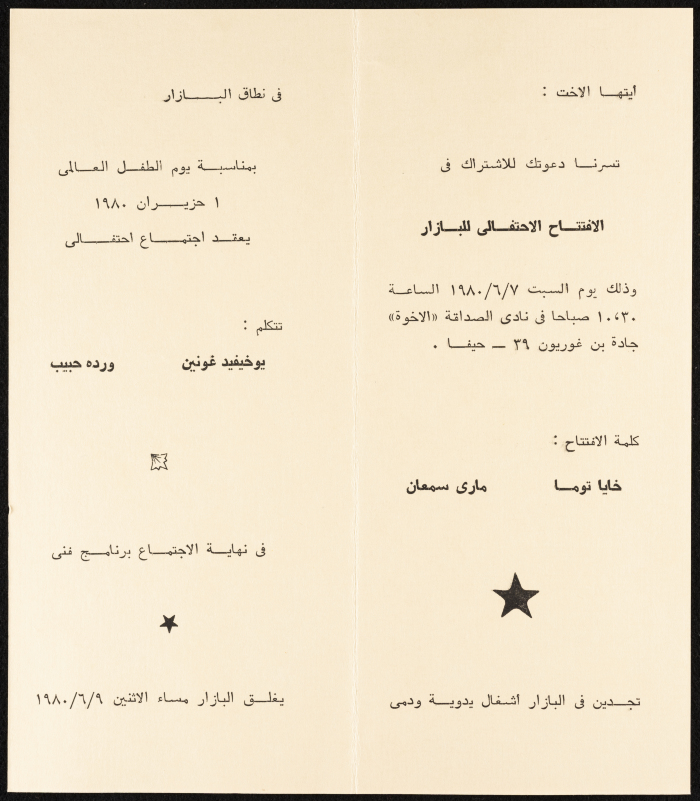 أيتهـا الاخت :
تسرنـا دعوتك للاشتراك فى
الافتتـاح الاحتفـالى للبـازار
وذلك يوم السبت ١٩٨٠/٦/٧ الساعـة
١٠،٣٠ صباحا فى نادى الصداقة «الاخوة»
جادة بن غوريون ٣٩ ــ حيفـا .
كلمة الافتتاح :
خايا تومـا مارى سمعان
تجـدين فى البازار أشغال يدويـة ودمى
فى نطاق البـــازار
بمناسبـة يوم الطفـل العـالمى
١ حزيـران ١٩٨٠
يعقـد اجتمـاع احتفـالى
تتكلم :
يوخيفيد غونين ورده حبيب
فى نهايـة الاجتمـاع برنامـج فنى
يغلـق البازار مساء الاثنين ١٩٨٠/٦/٩